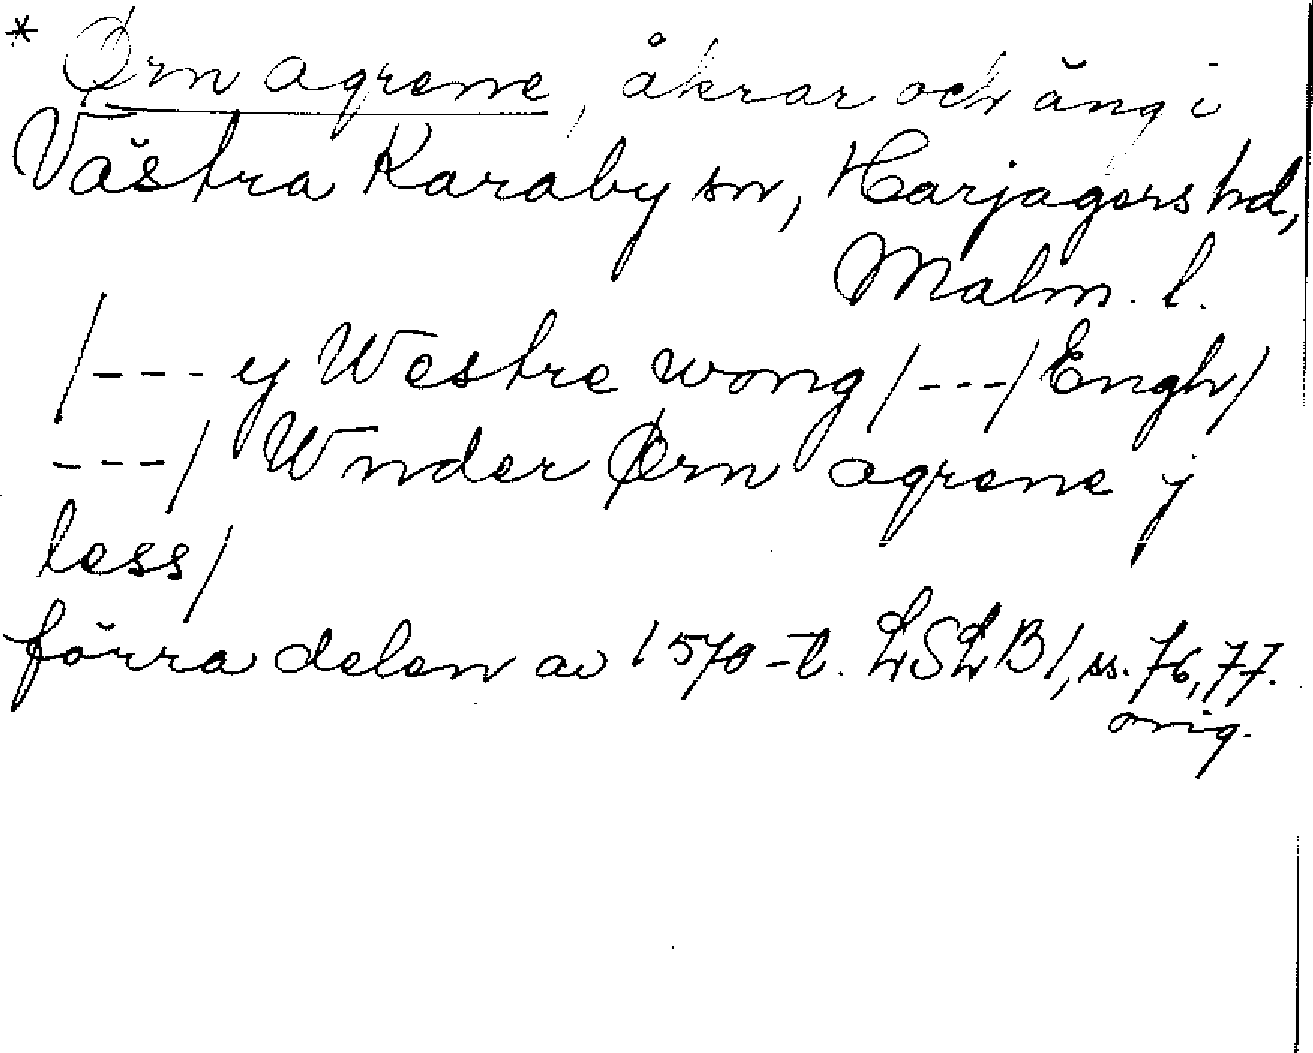 * Ørn agrene, åkrar och äng i
Västra Karaby sn, Harjagers hd,
Malm. l.
/--- y Westre wong /---/ Engh /
---/ Wnder Ørn agrene j
less /
förra delen av 1570-t. LSLB 1, ss. 76, 77.
orig.